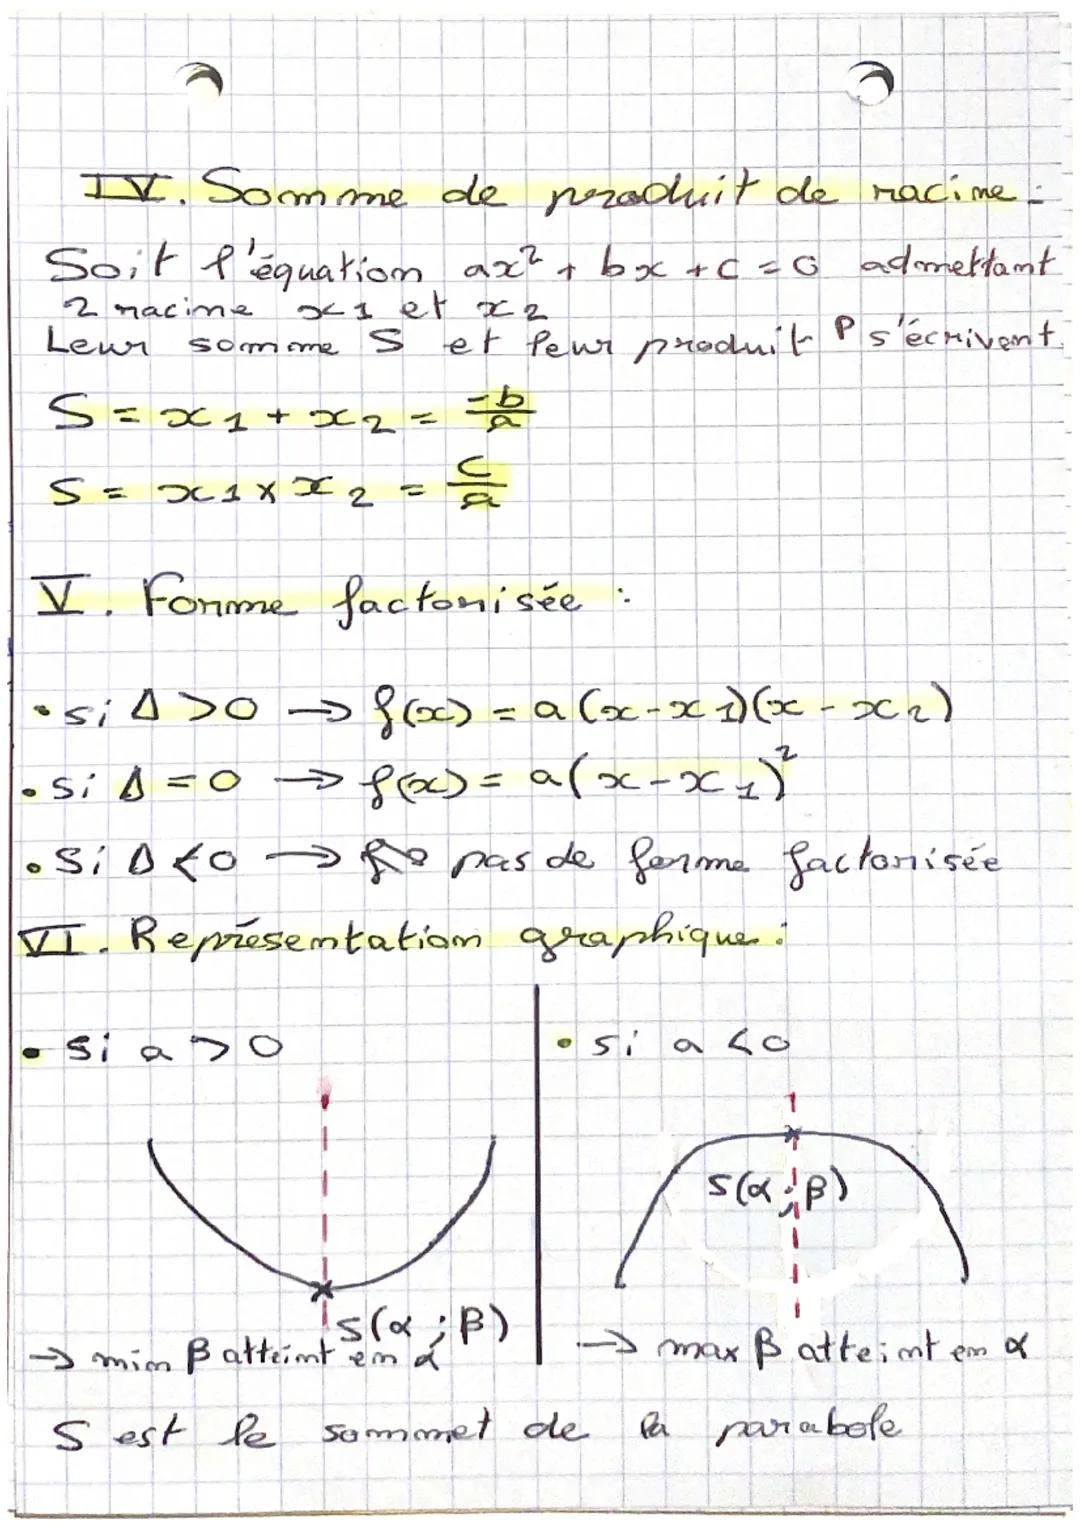 IV. Somme de produit de racine :
Soit l'équation ax² + bx + c = 0 admettant
2 racine x1 et x2
Leur somme S et leur produit P s'écrivent.
S = x1 + x2 = -b/a
S = x1 x x2 = c/a
V. Forme factorisée :
• si Δ > 0 → f(x) = a(x-x1)(x-x2)
• si Δ = 0 → f(x) = a(x-x1)²
• Si Δ < 0 → pas de forme factorisée
VI. Représentation graphique :
• si a > 0
S(α ; β)
→ min β atteint en α
• si a < 0
S(α ; β)
→ max β atteint en α
S est le sommet de la parabole